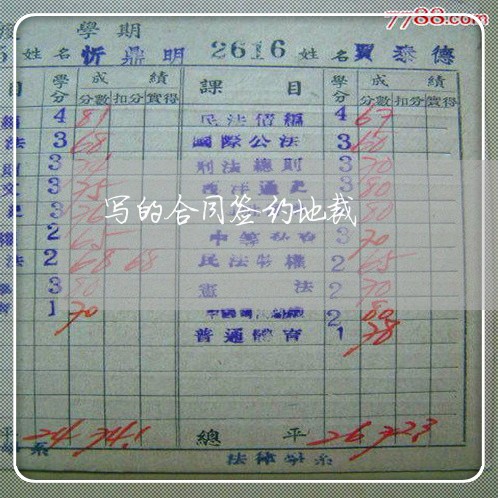 7788.com
學期
姓名 忻鼎明 2616 姓名 賈泰德
目 學分 成績 課目 學分 成績
分數 扣分 實得 分數 扣分 實得
4 81 民法債編 4 67
法 3 68 國際公法 3 60
3 刑法總則 3 70
文 3 75 西洋通史 3 80
3 76 3 80
2 65 3 70
法 2 68 68 民法物權 2 65
3 80 憲法 2 70
1 70 2 80
普通體育 1 78
写的合同签约地裁
平 24 74.1 總平 26 72.3
系 法律學系